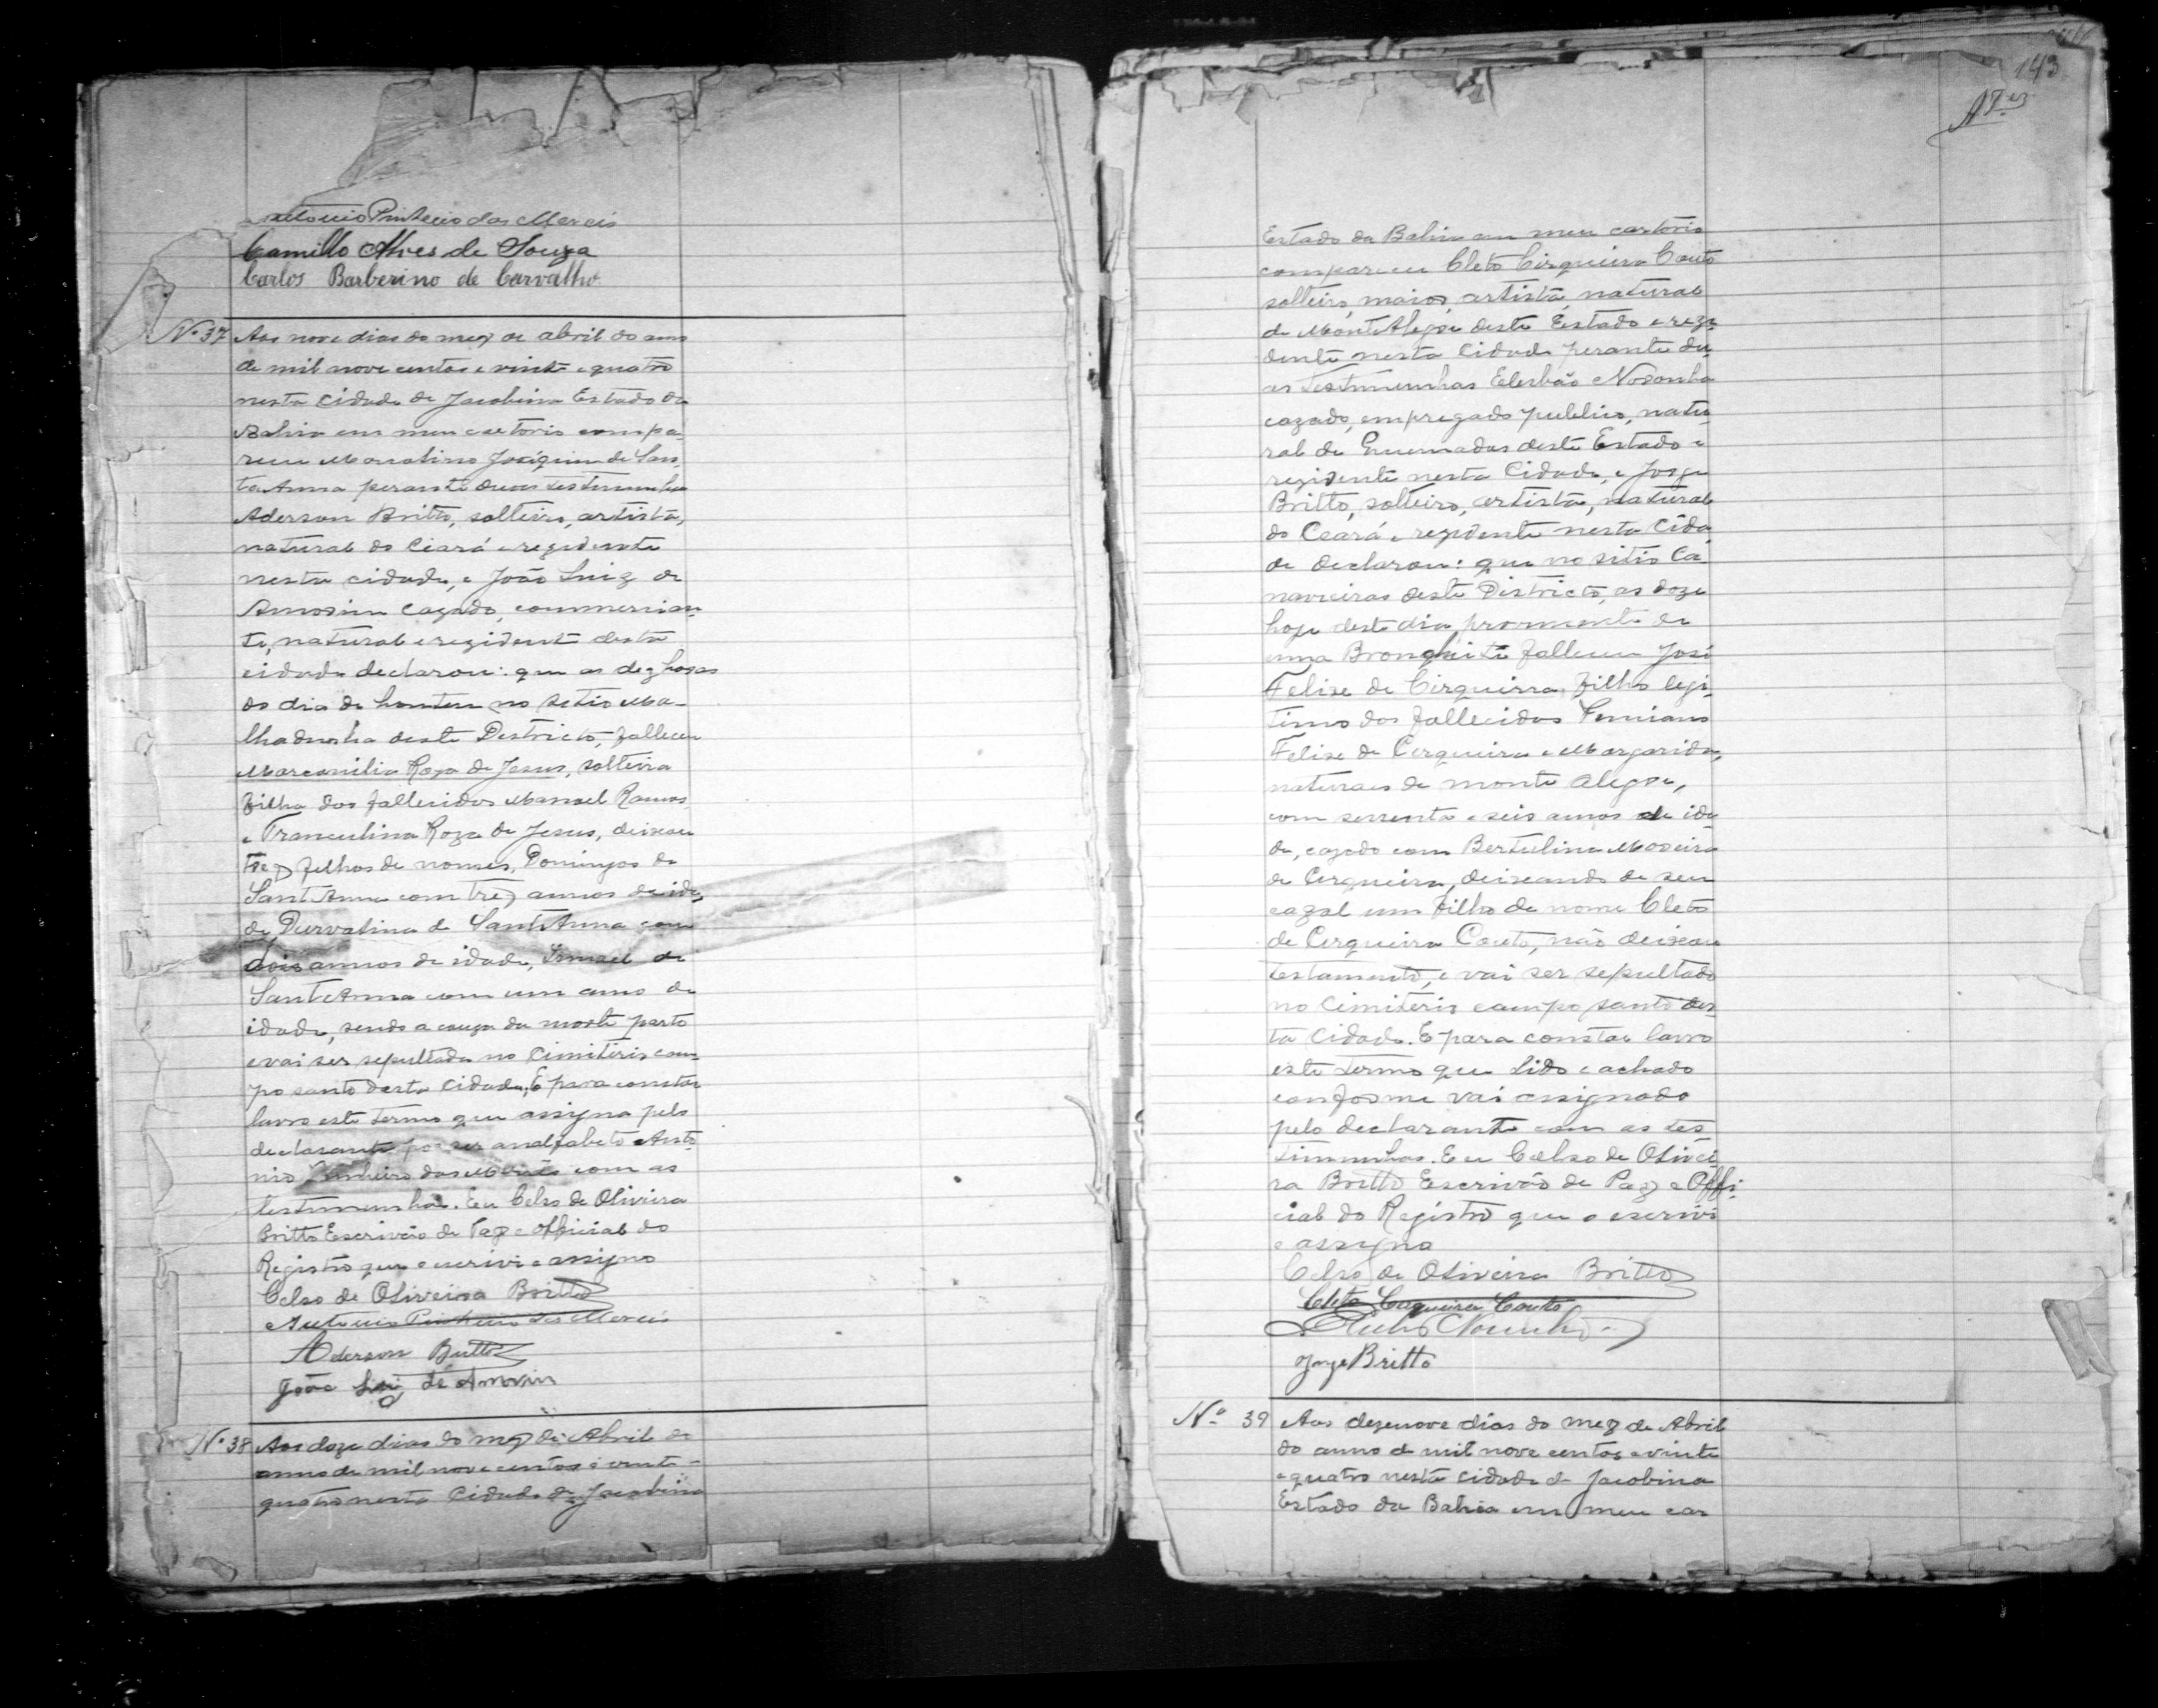 Antonio Pinheiro das Mercês
Camillo Alves de Souza
Carlos Barberino de Carvalho
Nº 37 Aos nove dias do mez de abril do anno
de mil nove centos e vinte e quatro
nesta cidade de Jacobina Estado da
Bahia em meu cartorio compa-
receu Marcolino Joaquim de San-
ta Anna perante duas testemunhas
Aderson Britto, solteiro, artista,
natural do Ceará e rezidente
nesta cidade, e João Luiz de
Amorim cazado, commercian-
te, natural e rezidente desta
cidade declarou: que as dez horas
do dia de hontem no Setio Ma-
lhadinha deste Destricto, falleceu
Marconilia Roza de Jesus, solteira
filha dos fallecidos Manoel Ramos
e Tranculina Roza de Jesus, deixou
trez filhos de nomes, Domingos de
Sant Anna com trez annos de ida-
de, Durvalina de Sant Anna com
dois annos de idade, Ismael de
Sant Anna com um anno de
idade, sendo a cauza da morte parto
e vai ser sepultada no Cimiterio cam-
po santo desta Cidade. E para constar
lavro este termo que assigna pelo
declarante por ser analfabeto Anto-
nio Pinheiro das Mercês com as
testemunhas. Eu Celso de Oliveira
Britto Escrivão de Paz e Official do
Registro que o escrivi e assigno
Celso de Oliveira Britto
Antonio Pinheiro das Mercês
Aderson Britto
João Luiz de Amorim
Nº 38 Aos doze dias do mez de Abril do
anno de mil nove centos e vinte e
quatro nesta Cidade de Jacobina
143
Estado da Bahia em meu cartorio
compareceu Cleto Cirqueira Couto
solteiro, maior, artista natural
de Monte Alegre deste Estado e rezi-
dente nesta Cidade perante du-
as testimunhas Elesbão Noronha
cazado, empregado publico, natu-
ral de Queimadas deste Estado e
rezidente nesta Cidade, e Jorge
Britto, solteiro, artista, natural
do Ceará e rezidente nesta Cida-
de declarou: que no sitio Ca-
navieiras deste Districto, as doze
horas deste dia proveniente de
uma Bronquite falleceu José
Felixe de Cirqueira, filho legi-
timo dos fallecidos Firmiano
Felixe de Cerqueira e Margarida,
naturaes de Monte Alegre,
com secenta e seis annos de ida-
de, cazado com Bertulina Moreira
de Cerqueira, deixando de seu
cazal um filho de nome Cleto
de Cerqueira Couto, não deixou
testamento, e vai ser sepultado
no Cimiterio campo santo des-
ta Cidade. E para constar lavro
este termo que lido e achado
conforme vai assignado
pelo declarante com as tes-
timunhas. Eu Celso de Olivei-
ra Britto Escrivão de Paz e Offi-
cial do Registro que o escrivi
e assigno
Celso de Oliveira Britto
Cleto Cerqueira Couto
Noronha
Jorge Britto
Nº 39 Aos dezenove dias do mez de Abril
do anno de mil nove centos e vinte
e quatro nesta cidade de Jacobina
Estado da Bahia em meu car